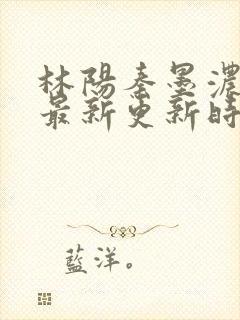 林陽秦墨濃
最新更新時
藍洋。